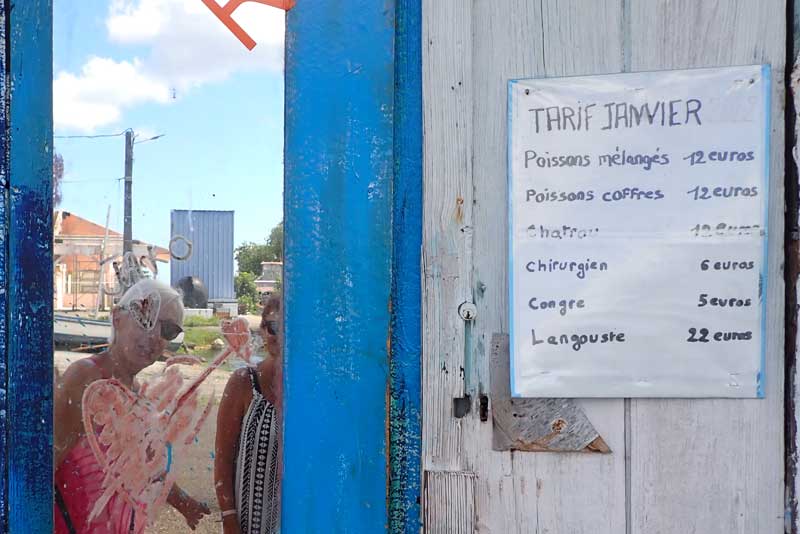 TARIF JANVIER
Poissons mélangés 12 euros
Poissons coffres 12 euros
Chatrou 12 euros
Chirurgien 6 euros
Congre 5 euros
Langouste 22 euros